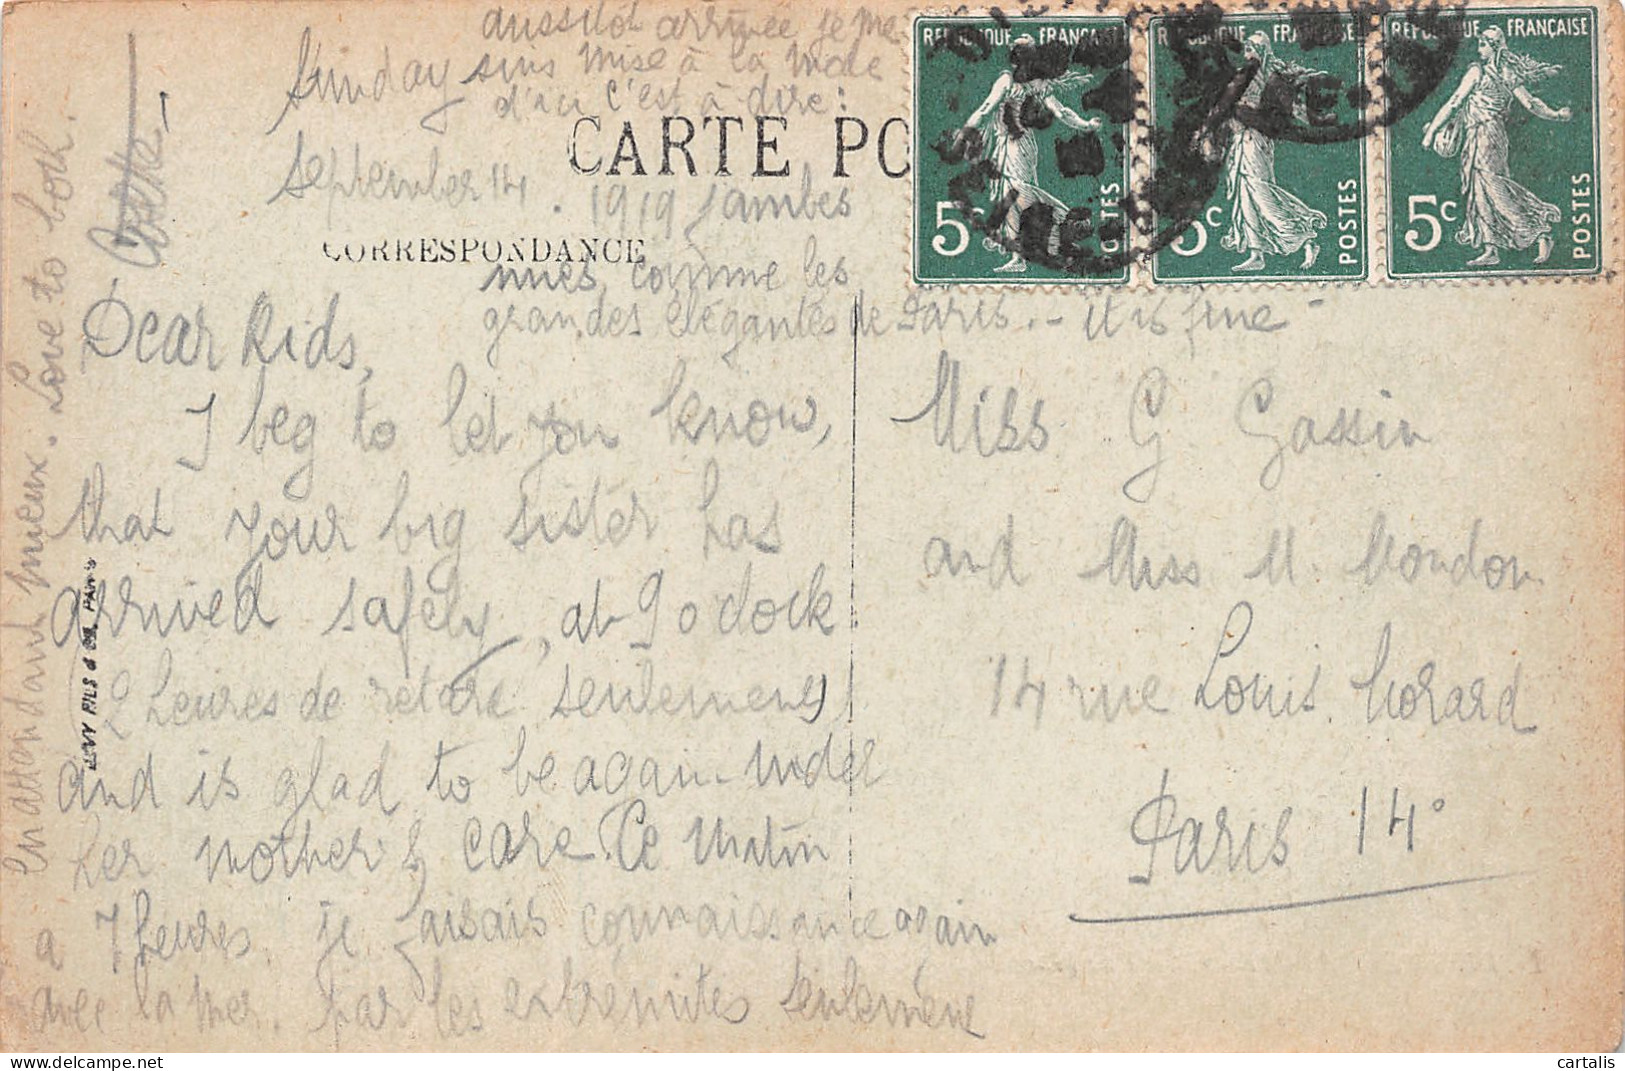 aussitôt arrivée je me
suis mise à la mode
d'ici c'est à dire:
jambes
nues, comme les
grandes élégantes de Paris.- it is fine -
Sunday
September 14. 1919
CARTE PO
CORRESPONDANCE
Dear Kids,
I beg to let you know,
that your big sister has
arrived safely, at 9 o clock
2 heures de retard seulement
and is glad to be again under
her mother's care. Ce matin
a 7 heures, je faisais connaissance again
avec la mer. par les extremités seulement
en attendant mieux. Love to both.
LEVY FILS & Co. PARIS
Miss G Gassin
and Miss M. Mondon
14 rue Louis Morard
Paris 14°
REPUBLIQUE FRANÇAISE
5c POSTES
REPUBLIQUE FRANÇAISE
5c POSTES
REPUBLIQUE FRANÇAISE
5c POSTES
cartalis